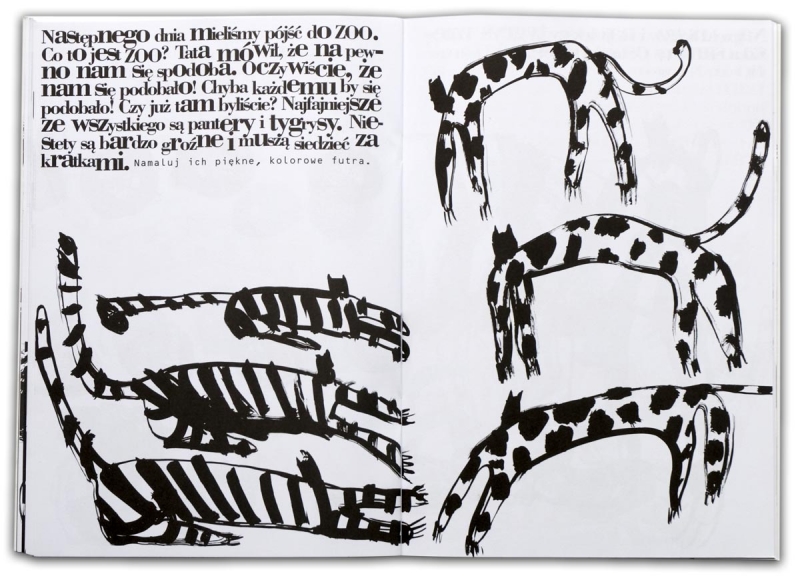 Następnego dnia mieliśmy pójść do ZOO.
Co to jest ZOO? Tata mówił, że na pew-
no nam się spodoba. Oczywiście, że
nam się podobało! Chyba każdemu by się
podobało! Czy już tam byliście? Najfajniejsze
ze wszystkiego są pantery i tygrysy. Nie-
stety są bardzo groźne i muszą siedzieć za
kratkami. Namaluj ich piękne, kolorowe futra.